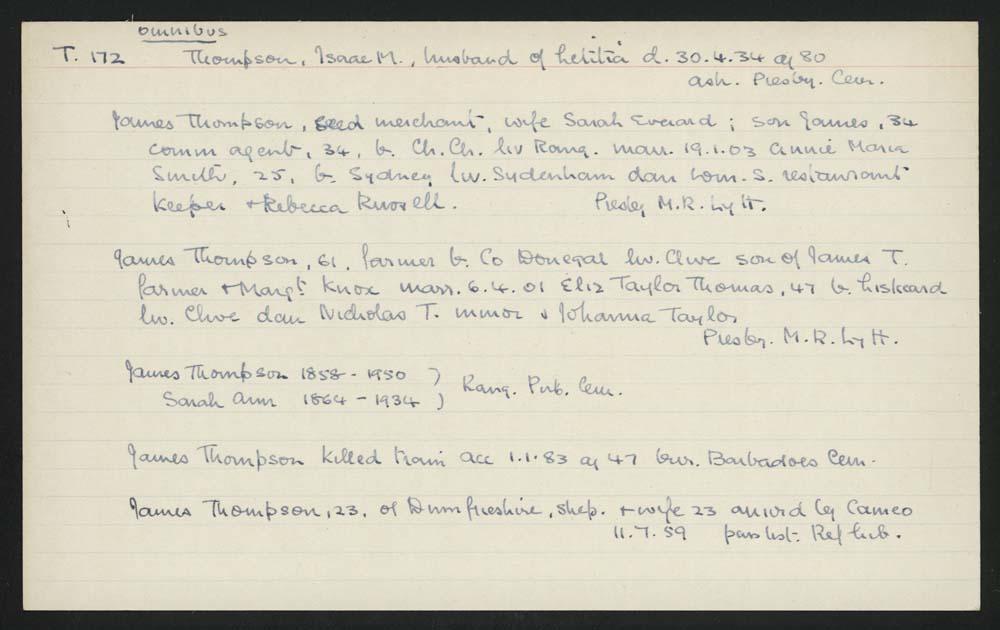 omnibus
T. 172 Thompson, Isaac M., husband of Letitia d. 30.4.34 ag 80
ash. Presby. Cem.
James Thompson, seed merchant, wife Sarah Everard; son James, 34
comm agent, 34, b. Ch.Ch. liv Rang. marr. 19.1.03 Annie Maria
Smith, 25, b. Sydney liv. Sydenham dau Wm. S. restaurant
keeper + Rebecca Russell. Presby M.R. Lytt.
James Thompson, 61, farmer b. Co Donegal liv. Clive son of James T.
farmer + Margt Knox marr. 6.4.01 Eliz Taylor Thomas, 47 b. Liskeard
liv. Clive dau Nicholas T. minor & Johanna Taylor
Presby. M.R. Lytt.
James Thompson 1858 - 1950 )
Sarah Ann 1864 - 1934 ) Rang. Pub. Cem.
James Thompson killed tram acc 1.1.83 ag 47 bur. Barbadoes Cem.
James Thompson, 23, of Dumfrieshire, shep. + wife 23 arrivd by Cameo
11.7.59 pass list: Ref lib.